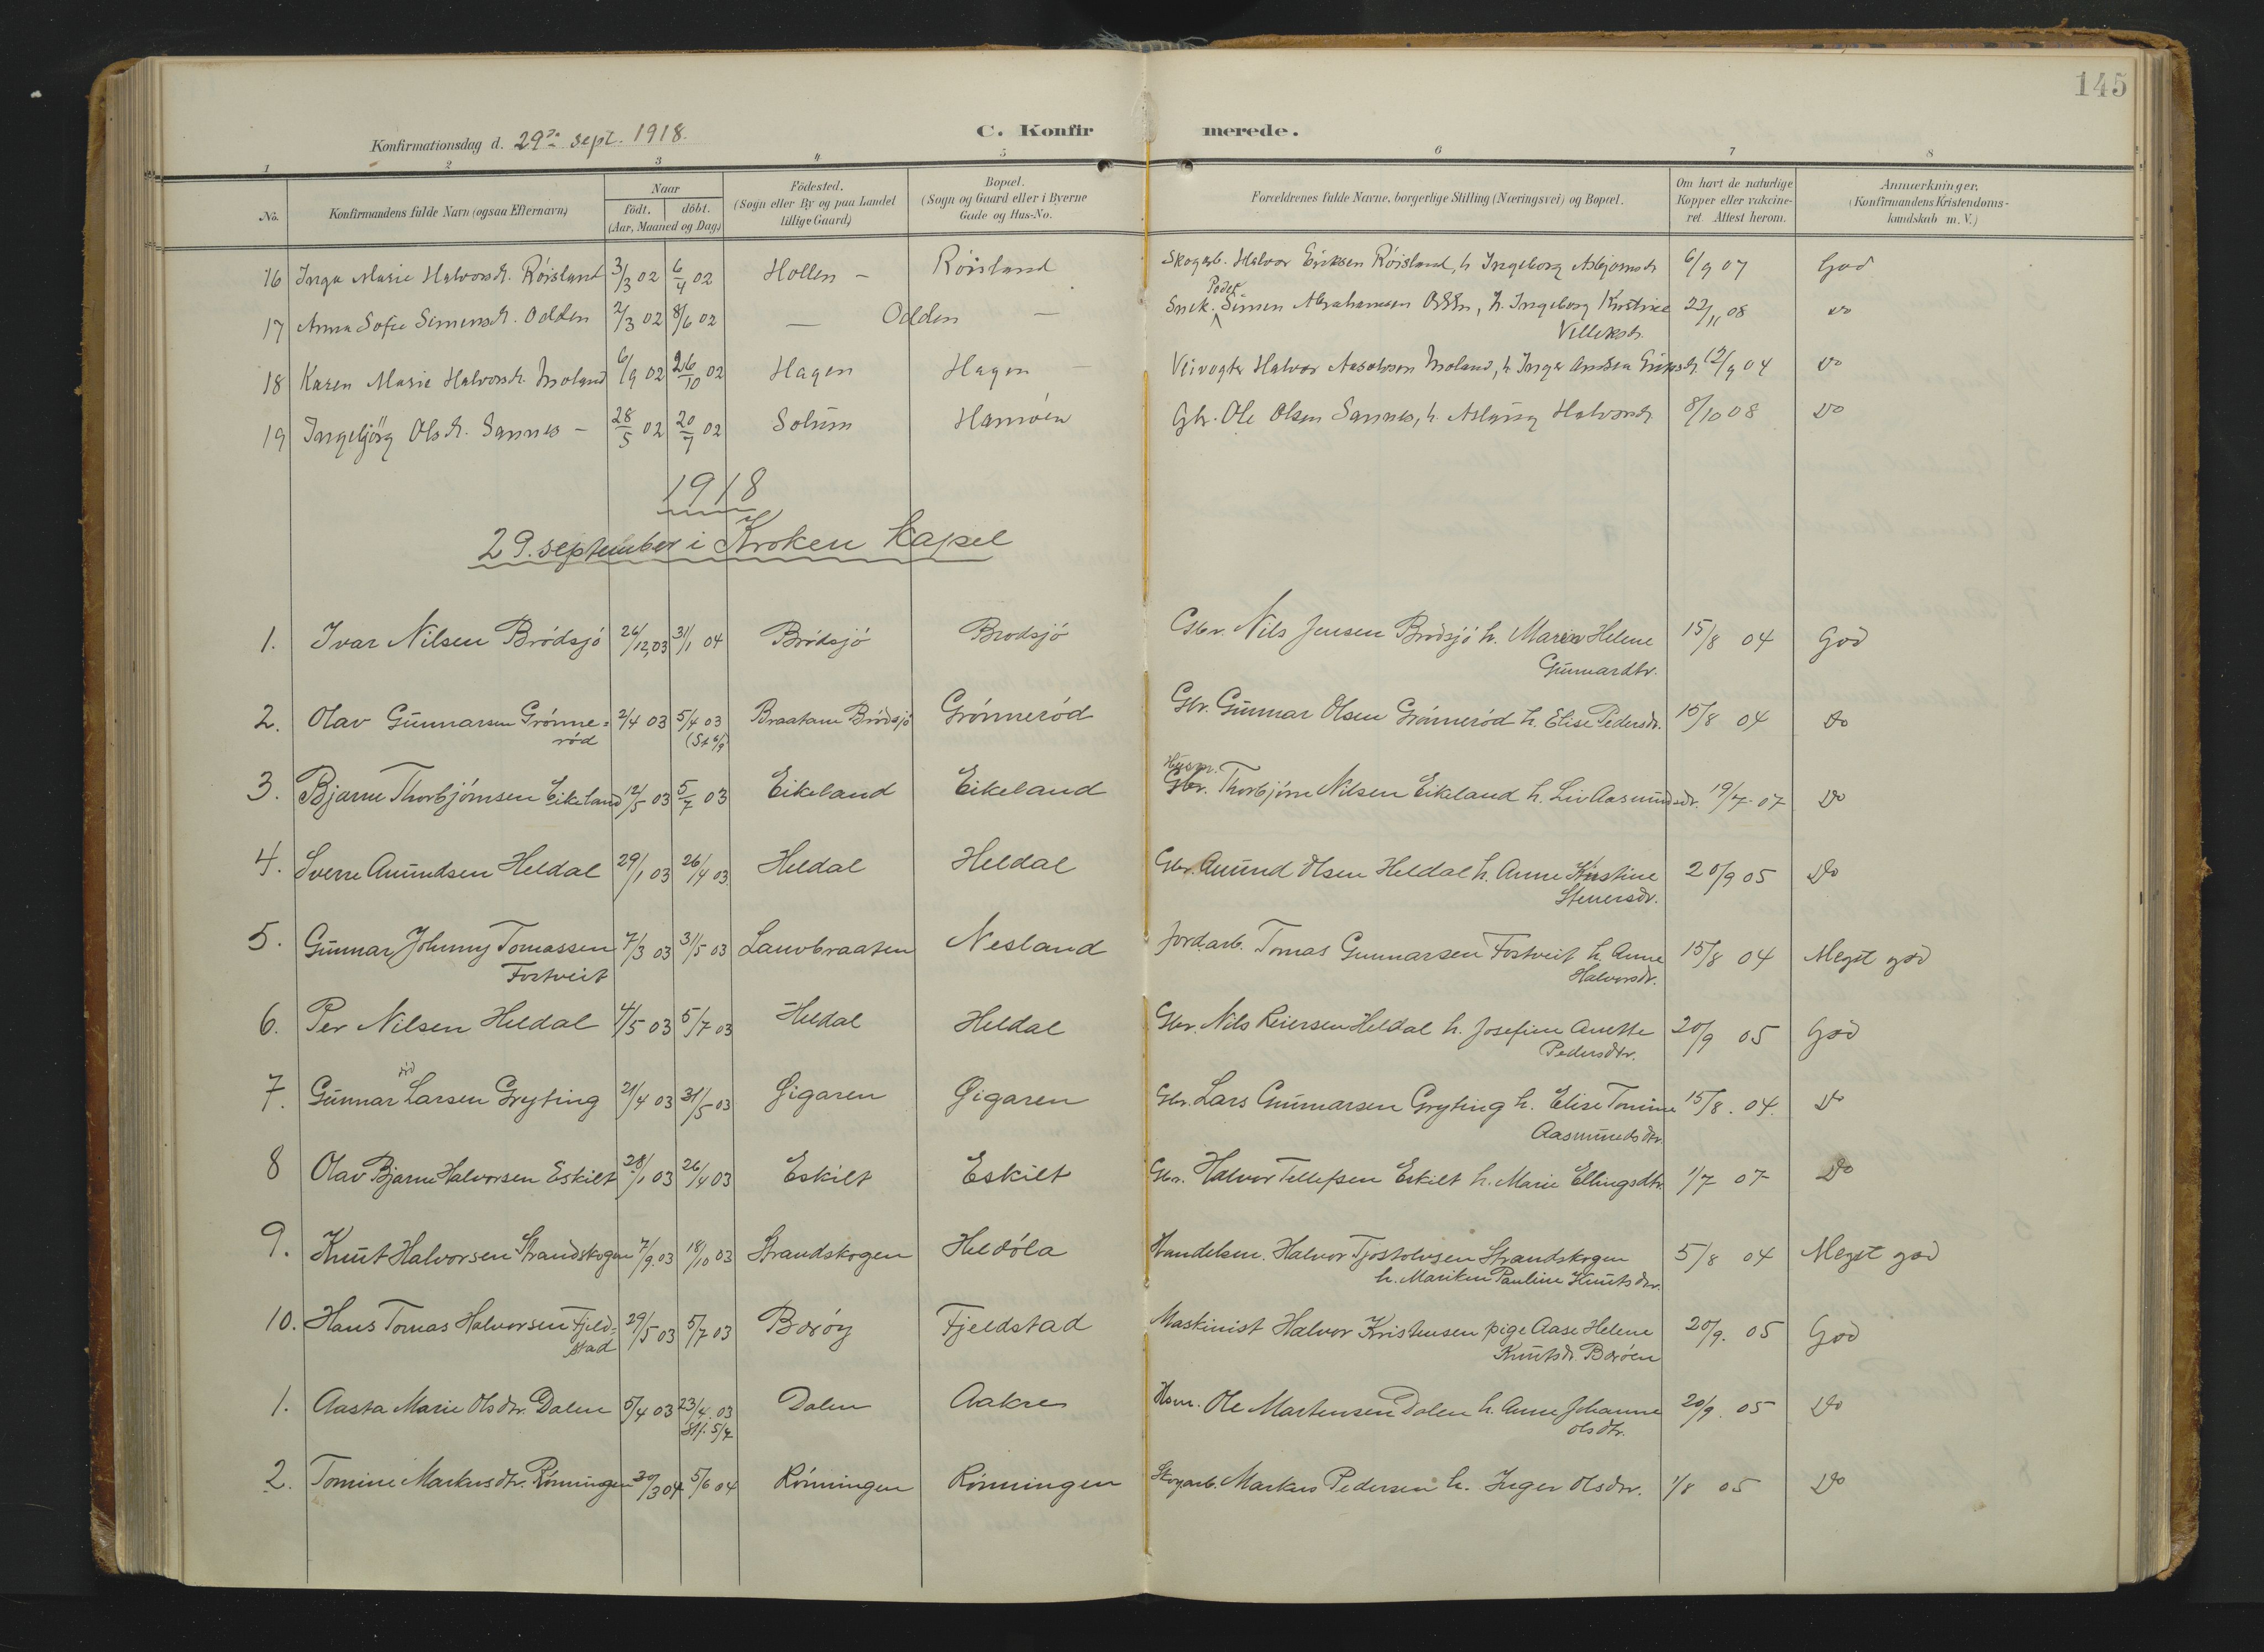 145
Konfirmationsdag d. 29de sept. 1918.
C. Konfirmerede.
1 2 3 4 5 6 7 8
No.
Konfirmandens fulde Navn (ogsaa Efternavn)
Naar
født. døbt.
(Aar, Maaned og Dag)
Fødested.
(Sogn eller By og paa Landet
tillige Gaard)
Bopæl.
(Sogn og Gaard eller i Byerne
Gade og Hus-No.
Forældrenes fulde Navne, borgerlige Stilling (Næringsvei) og Bopæl.
Om havt de naturlige
Kopper eller vakcine-
ret. Attest herom.
Anmærkninger.
(Konfirmandens Kristendoms-
kundskab m. V.)
16 Inga Marie Halvorsdr. Röisland 3/3 02 6/4 02 Hollen – Röisland Skogarb. Halvor Eriksen Röisland, h. Ingeborg Asbjørnsdr. 6/9 07 God
17 Anna Sofie Simensdr. Odden 2/3 02 8/6 02 — Odden — Snek. Peder Simen Abrahamsen Odden, h. Ingeborg Kirstine 23/11 08 do
18 Karen Marie Halvorsdr. Moland 6/9 02 26/10 02 Hagen Hagen – Veivogter Halvor Aasolvsen Moland, h. Inger 12/9 04 do
19 Ingebjörg Olsdr. Sannes – 28/5 02 20/7 02 Solum Hamöen Gbr. Ole Olsen Sannes, h. Aslaug Halvorsdr. 8/10 08 do
1918
29. september i Kroken kapel
1. Ivar Nilsen Brödsjö 26/12 03 31/1 04 Brödsjö Brodsjö Gbr. Nils Jensen Brödsjö h. Maren Helene 15/8 04 God
Gunnardtr.
2. Olav Gunnarsen Grönne= 2/4 03 5/4 03 Braatane Brödsjö Grönneröd Gbr. Gunnar Olsen Grönneröd h. Elise Pedersdr. 15/8 04 do
röd
3. Bjarne Thorbjörnsen Eikeland 12/5 03 5/7 03 Eikeland Eikeland Husm. Gbr. Thorbjörn Nilsen Eikeland h. Liv Aasmundsdr. 19/7 07 do
4. Sverre Amundsen Heldal 29/1 03 26/4 03 Heldal Heldal Gbr. Amund Olsen Heldal h. Anne Kristine 20/9 05 do
Stenersdr.
5. Gunnar Johnny Tomassen 7/3 03 31/5 03 Lauvbraaten Nesland Jordarb. Tomas Gunnarsen Fostveit h. Anne 15/8 04 Meget god
Fostveit Halvorsdr.
6. Per Nilsen Heldal 4/5 03 5/7 03 Heldal Heldal Gbr. Nils Reiersen Heldal h. Josefine Anette 20/9 05 God
Pedersdtr.
7. Gunnar Larsen Gryting 21/4 03 31/5 03 Gigaren Gigaren Gbr. Lars Gunnarsen Gryting h. Elise Tomine 15/8. 04. do
Aasmundsdtr.
8 Olav Bjarne Halvorsen Eskilt 28/1 03 26/4 03 Eskilt Eskilt Gbr. Halvor Tellefsen Eskilt h. Marie Ellingsdtr. 1/7 07 do
9. Knut Halvorsen Strandskogen 7/9. 03 18/10 03 Strandskogen Heldöla Handelsm. Halvor Tjostolvsen Strandskogen 5/8 04 Meget god
h. Mariken Pauline Knutsdtr.
10. Hans Tomas Halvorsen Fjeld= 29/5 03 5/7 03 Boröy Fjeldstad Maskinist Halvor Kristensen pige Aase Helene 20/9. 05 God
stad Knutsdr. Boröen
1. Aasta Marie Olsdtr. Dalen 5/4 03 23/4. 03 Dalen Aakre Husm. Ole Martensen Dalen h. Anne Johanne 20/9. 05 do
Olsdtr.
2. Tomine Markusdtr. Rönningen 30/3 04 5/6 04 Rönningen Rönningen Skogarb. Markus Pedersen h. Inger Olsdtr. 1/8 05 do